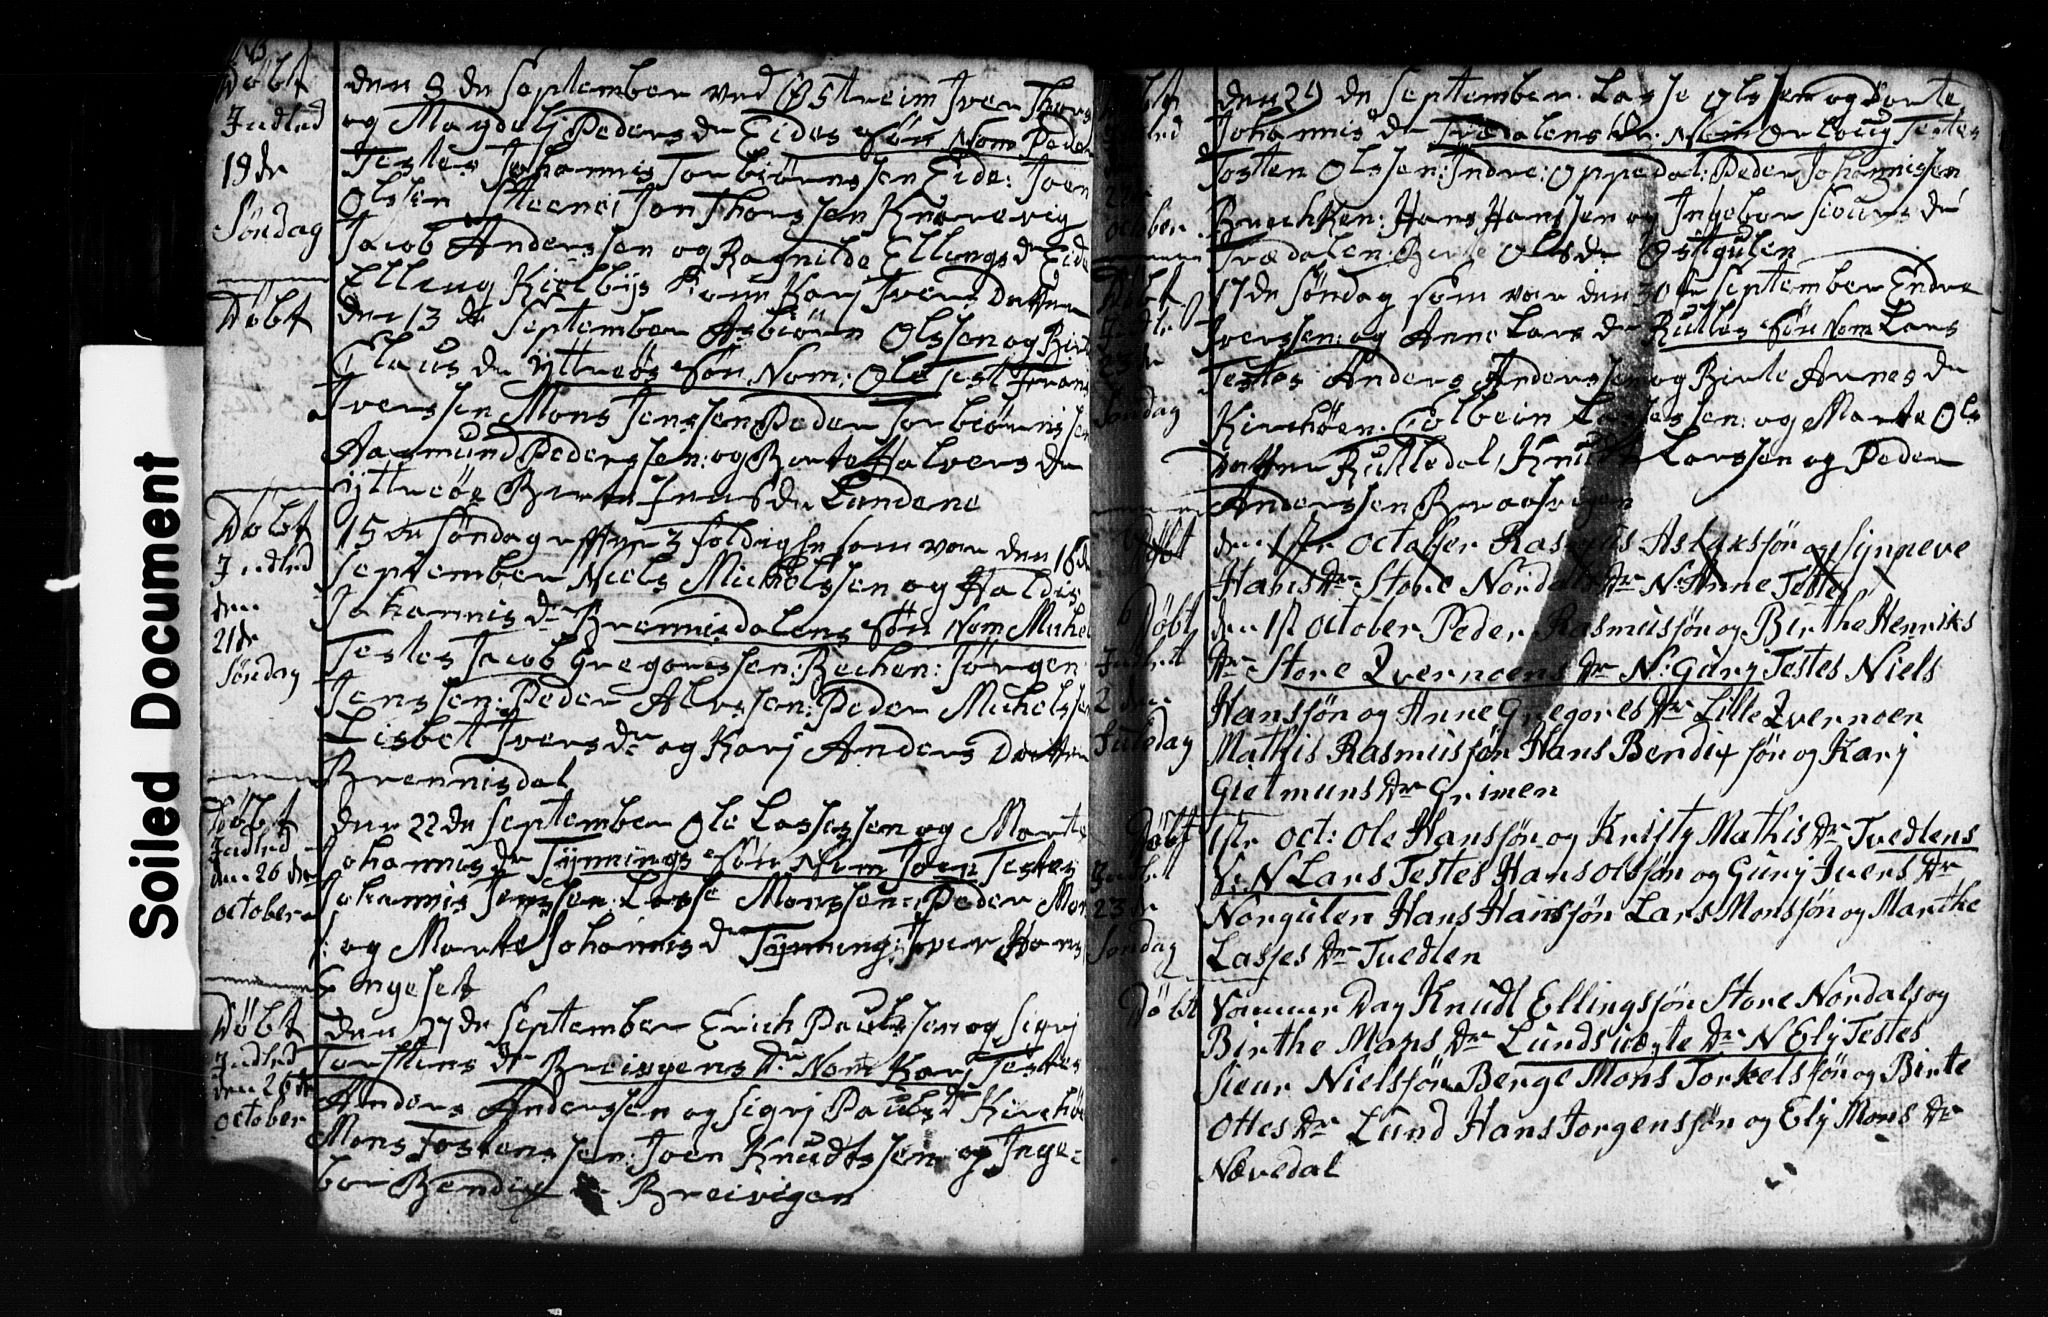 Soiled Document
Døbt
Indled
19de
Søndag
den 8de September ved Østreim Iver Thors
og Magdeli Peders dr Eides Søn Nom Peder
Testes Johannis Torbiørnssen Eide: Joen
Olssen Steene: Jon Thorssen Knarevig
Jacob Anderssen og Ragnilde Ellings dr Eide
Elling Kiolbiis Kone Karj Ivers Datter
Døbt
den 13de September Asbiørn Olssen og Birte
Claus dr Yttreøs Søn Nom: Ole Test Frans
Iverssen Mons Jenssen Peder Torbiørnssen
Aagmund Pederssen: og Barte Halvers dr
Yttreøe Barte Jens dr Lundene
Døbt
Indled
den
21de
Søndag
15de Søndag efter 3foldighe som var den 16de
September Niels Michelssen og Haldis
Johannis dr Brennisdalens Søn Nom Michel
Testes Jacob Gregorissen: Rechen: Jørgen
Jenssen: Peder Alvssen: Peder Michelssen
Lisbet Ivers dr og Karj Anders Datter
Brennisdal
Døbt
Indled
den 26de
october
den 22de September Ole Lassessen og Marte
Johannis dr Tynnings Søn Nom Joen Testes
Johannis Jenssen Lasse Monssen: Peder Mons
og Marte Johannis dr Tynning: Iver Hans
Engeset
Døbt
Indled
den 26de
October
den 27de September Erich Paulssen og Sigrj
Torstens dr Breivigens dr Nom Karj Testes
Anders Anderssen og Sigrj Pauls dr Kirchøe
Mons Tostenssen: Joen Knudtssen og Inge:
bor Bendix Breivigen
29de
october
den 29de September Lasse Olssen og Dorte
Johannis dr Trædalens dr: Nom Testes
Tosten Olssen: Indre: Oppedal: Peder Johannissen
Brechken: Hans Hanssen og Ingebor Siours dr
Trædalen Berte Ols dr Østgulen
Døbt
Indled
23de
Søndag
17de Søndag som var den 30te September Endre
Iverssen: og Anne Lars dr Rutles Søn Nom Lars
Testes Anders Anderssen og Birte Arnes dr
Kirchøen: Colbein Lassessen: og Marte Ols
Datter Rutledal, Knudt Larssen og Peder
Anderssen Braasvigen
Døbt
den 1ste October Rasmus Aslaksøn og Synneve
Hans dr Store Nordals dr N: Anne Testes
Døbt
Indled
2den
Juledag
den 1st October Peder Rasmussøn og Birthe Henriks
dr Store Qvernoens dr N: Gurj Testes Niels
Hanssøn og Anne Gregores dr Lille Qvernoen
Mathis Rasmussøn Hans Bendixsøn og Karj
Gietmuns dr Grimen
Døbt
Indled
23de
Søndag
1ste Oct: Ole Hanssøn og Kristj Mathis dr Tvedtens
S: N Lars Testes Hans Olssøn og Gurj Ivers dr
Norgulen Hans Hanssøn Lars Monssøn og Marthe
Lasses dr Tvedten
Døbt
Samme Dag Knudt Ellingssøn Store Nordals og
Birthe Mons dr Lundsuegte dr N Ely Testes
Sieur Nielssøn Berge Mons Torkelssøn og Birte
Ottes dr Lund Hans Jorgenssøn og Ely Mons dr
Nævedal